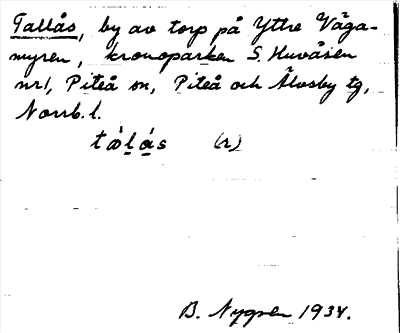 Tallås, by av torp på Yttre Våga-
myren, kronoparken S. Huvåsen
nr 1, Piteå sn, Piteå och Älvsby tg,
Norrb. l.
tàlás (r)
B. Nygren 1934.